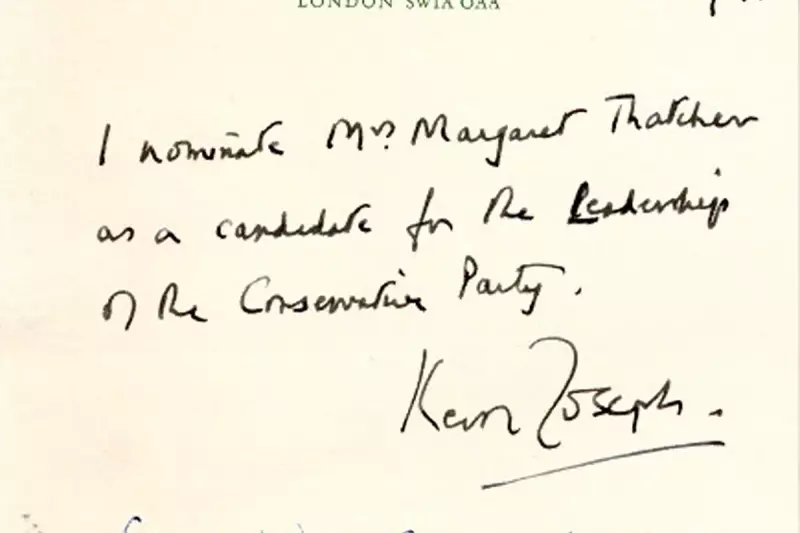 LONDON SW1A 0AA
I nominate Mrs. Margaret Thatcher
as a candidate for the Leadership
of the Conservative Party.
Keith Joseph.